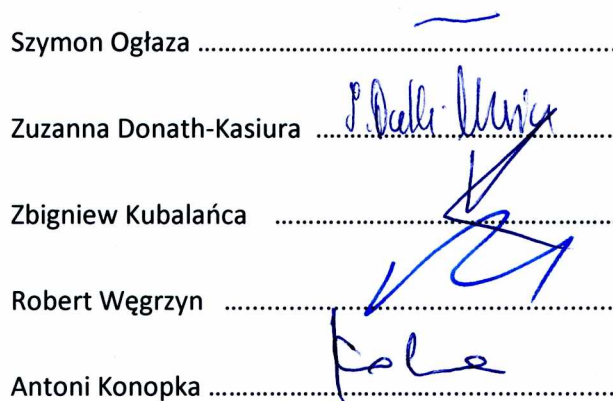 Szymon Ogłaza ..........................................................
Zuzanna Donath-Kasiura ..........................................
Zbigniew Kubalańca ................................................
Robert Węgrzyn ......................................................
Antoni Konopka ........................................................